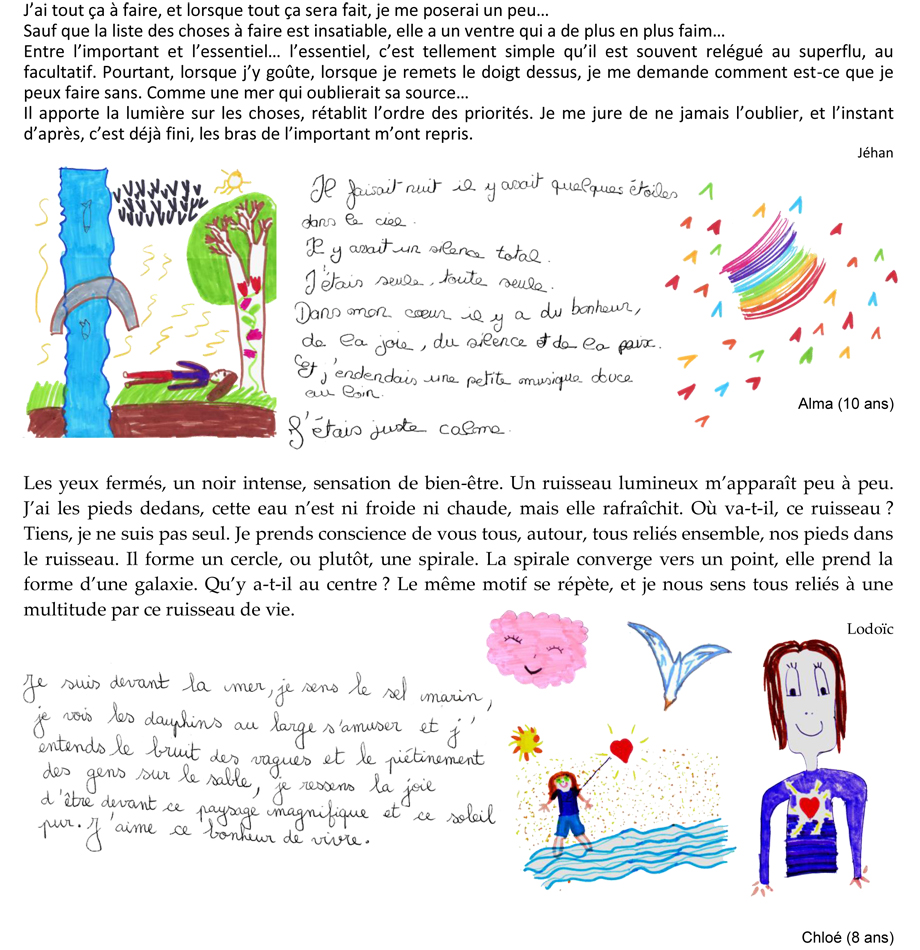 J’ai tout ça à faire, et lorsque tout ça sera fait, je me poserai un peu…
Sauf que la liste des choses à faire est insatiable, elle a un ventre qui a de plus en plus faim…
Entre l’important et l’essentiel… l’essentiel, c’est tellement simple qu’il est souvent relégué au superflu, au
facultatif. Pourtant, lorsque j’y goûte, lorsque je remets le doigt dessus, je me demande comment est-ce que je
peux faire sans. Comme une mer qui oublierait sa source…
Il apporte la lumière sur les choses, rétablit l’ordre des priorités. Je me jure de ne jamais l’oublier, et l’instant
d’après, c’est déjà fini, les bras de l’important m’ont repris.
Jéhan
Il faisait nuit il y avait quelques étoiles
dans le ciel.
Il y avait un silence total.
J'étais seule, toute seule.
Dans mon cœur il y a du bonheur,
de la joie, du silence et de la paix.
Et j'endendais une petite musique douce
au loin.
J'étais juste calme.
Alma (10 ans)
Les yeux fermés, un noir intense, sensation de bien-être. Un ruisseau lumineux m’apparaît peu à peu.
J’ai les pieds dedans, cette eau n’est ni froide ni chaude, mais elle rafraîchit. Où va-t-il, ce ruisseau ?
Tiens, je ne suis pas seul. Je prends conscience de vous tous, autour, tous reliés ensemble, nos pieds dans
le ruisseau. Il forme un cercle, ou plutôt, une spirale. La spirale converge vers un point, elle prend la
forme d’une galaxie. Qu’y a-t-il au centre ? Le même motif se répète, et je nous sens tous reliés à une
multitude par ce ruisseau de vie.
Lodoïc
Je suis devant la mer, je sens le sel marin,
je vois les dauphins au large s'amuser et j'
entends le bruit des vagues et le piétinement
des gens sur le sable, je ressens la joie
d'être devant ce paysage magnifique et ce soleil
pur. J'aime ce bonheur de vivre.
Chloé (8 ans)